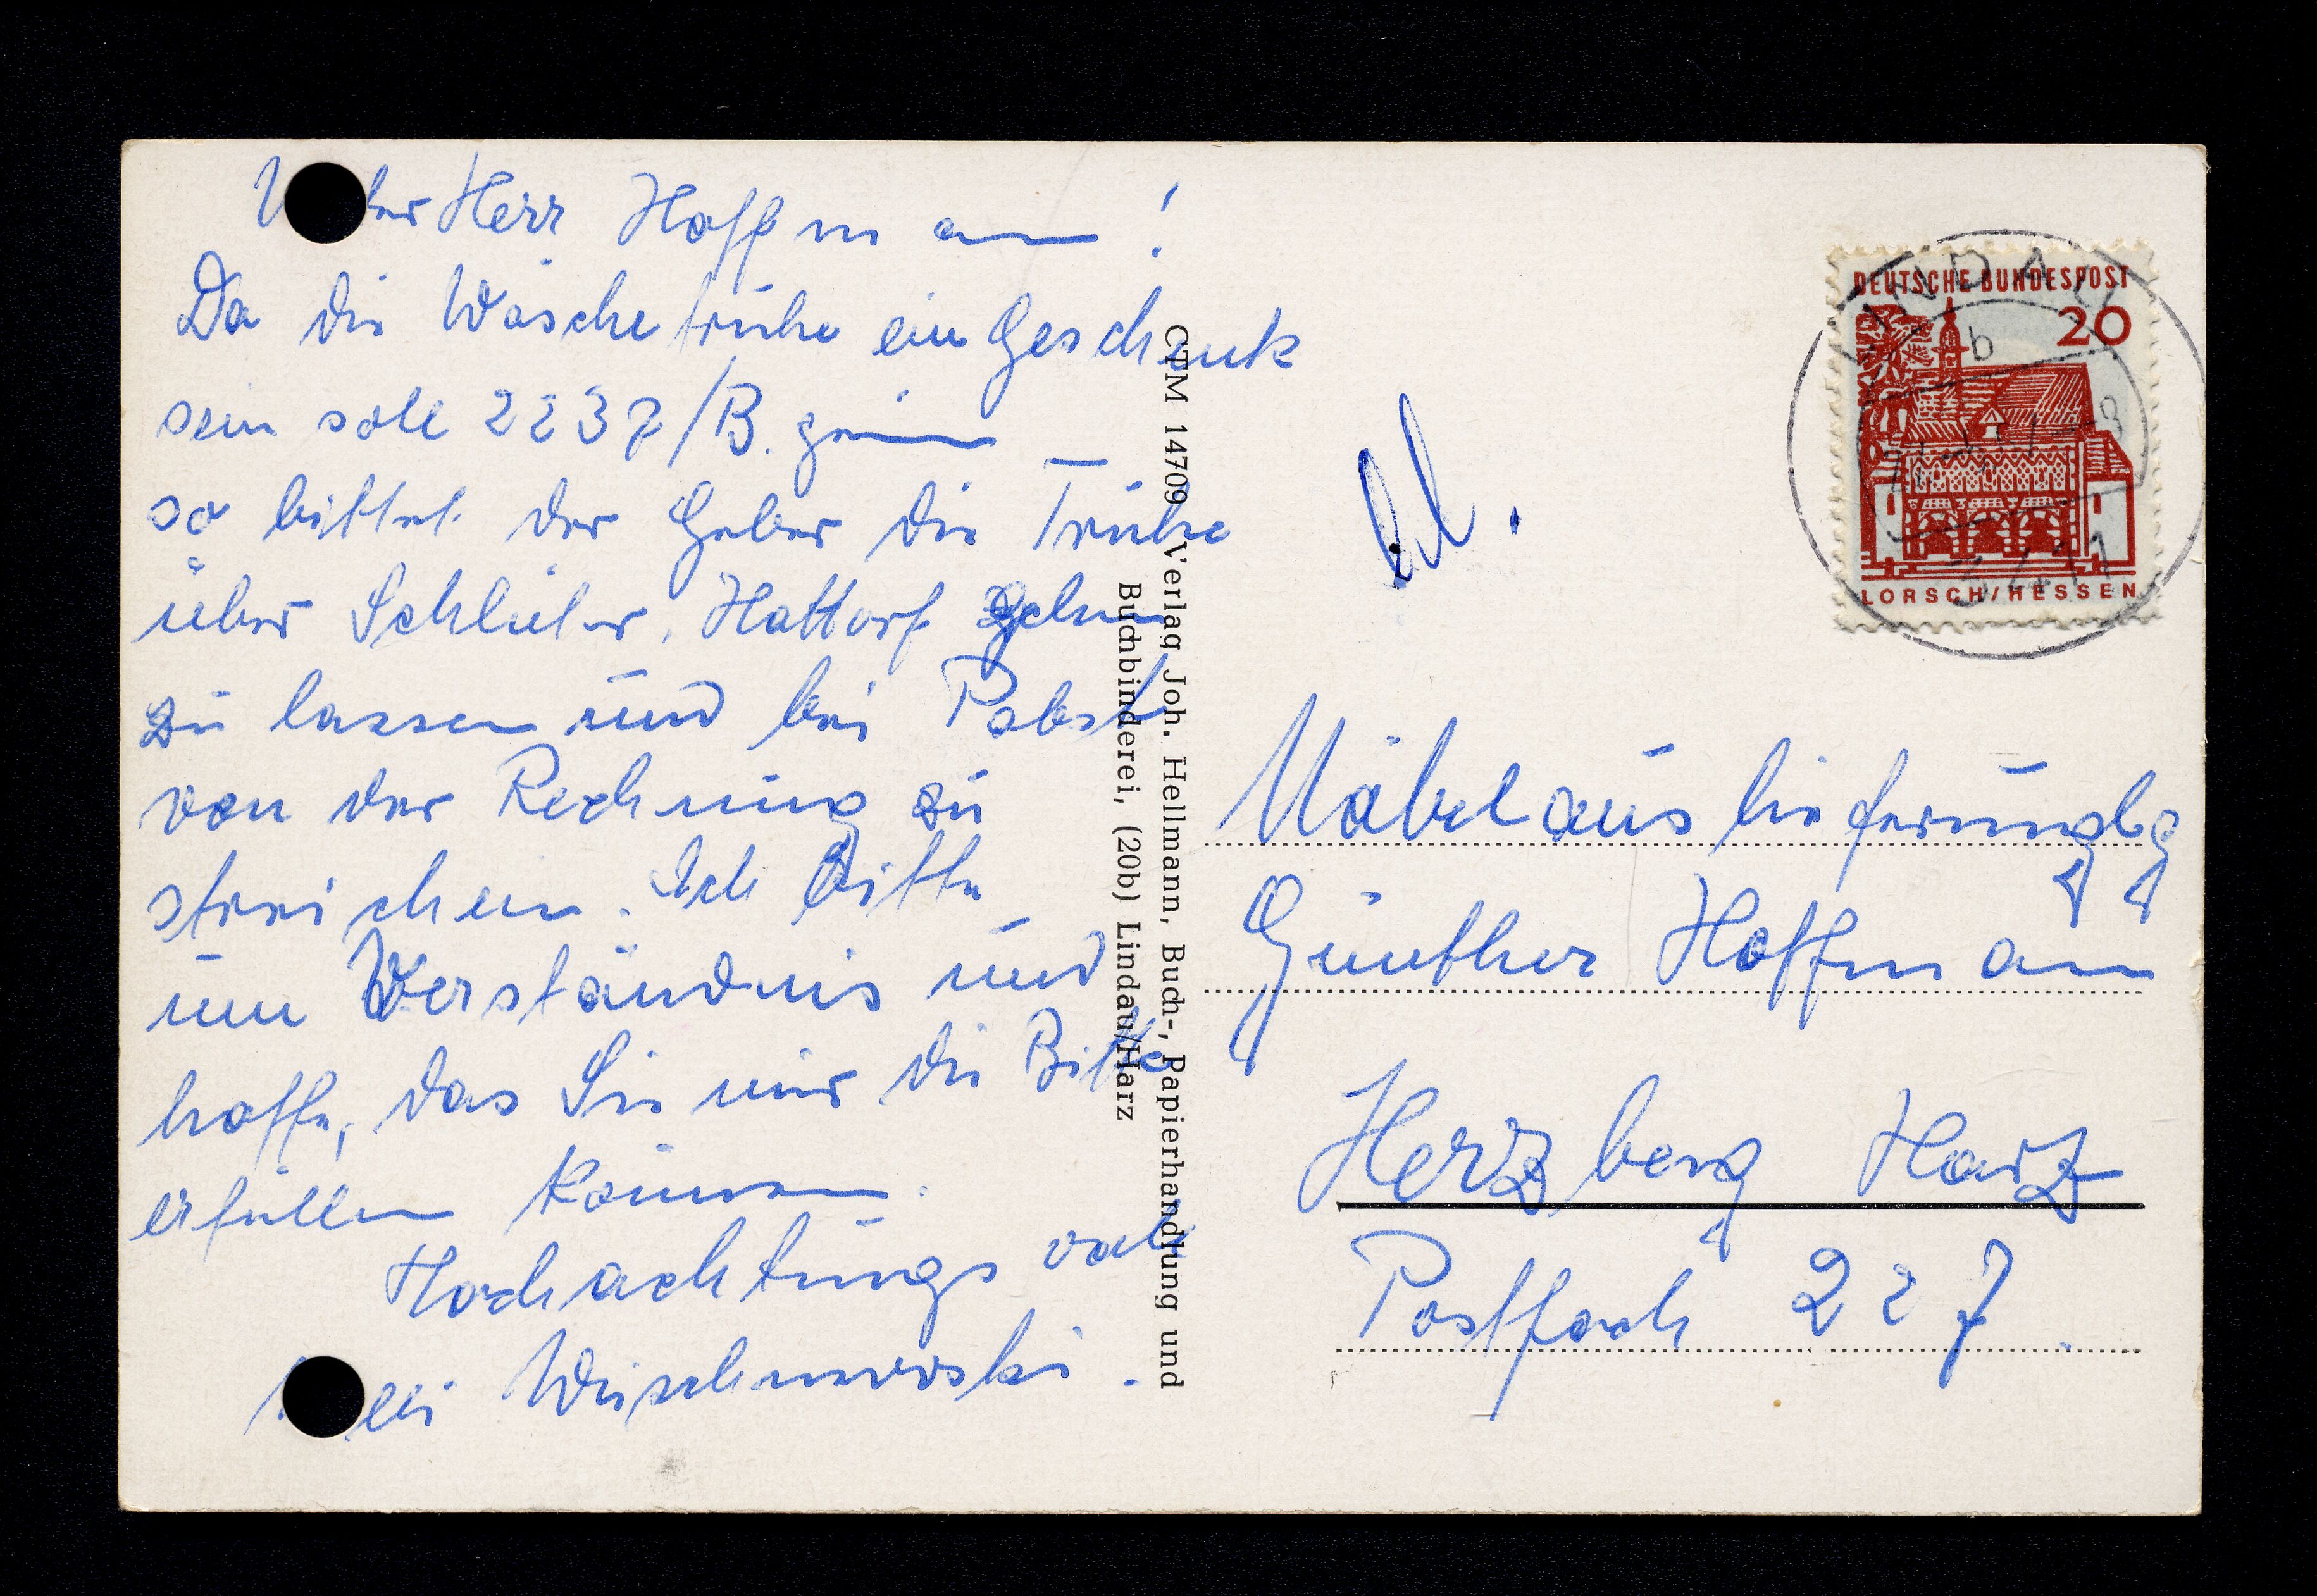 Herr Hoffmann!
Da die Wäschetruhe ein Geschenk
sein soll 2237/B. grün
so bittet der Geber die Truhe
über Schlüter, Hattorf gehn
zu lassen und bei Pabst
von der Rechnung zu
streichen. Ich bitte
um Verständnis und
hoffe, das Sie mir die Bitte
erfüllen können.
Hochachtungsvoll
Wischnewski.
CTM 14709 Verlag Joh. Hellmann, Buch-, Papierhandlung und
Buchbinderei, (20b) Lindau/Harz
DEUTSCHE BUNDESPOST
20
LORSCH/HESSEN
LINDAU
b
3411
Möbelauslieferungslg
Günther Hoffmann
Herzberg Harz
Postfach 227.